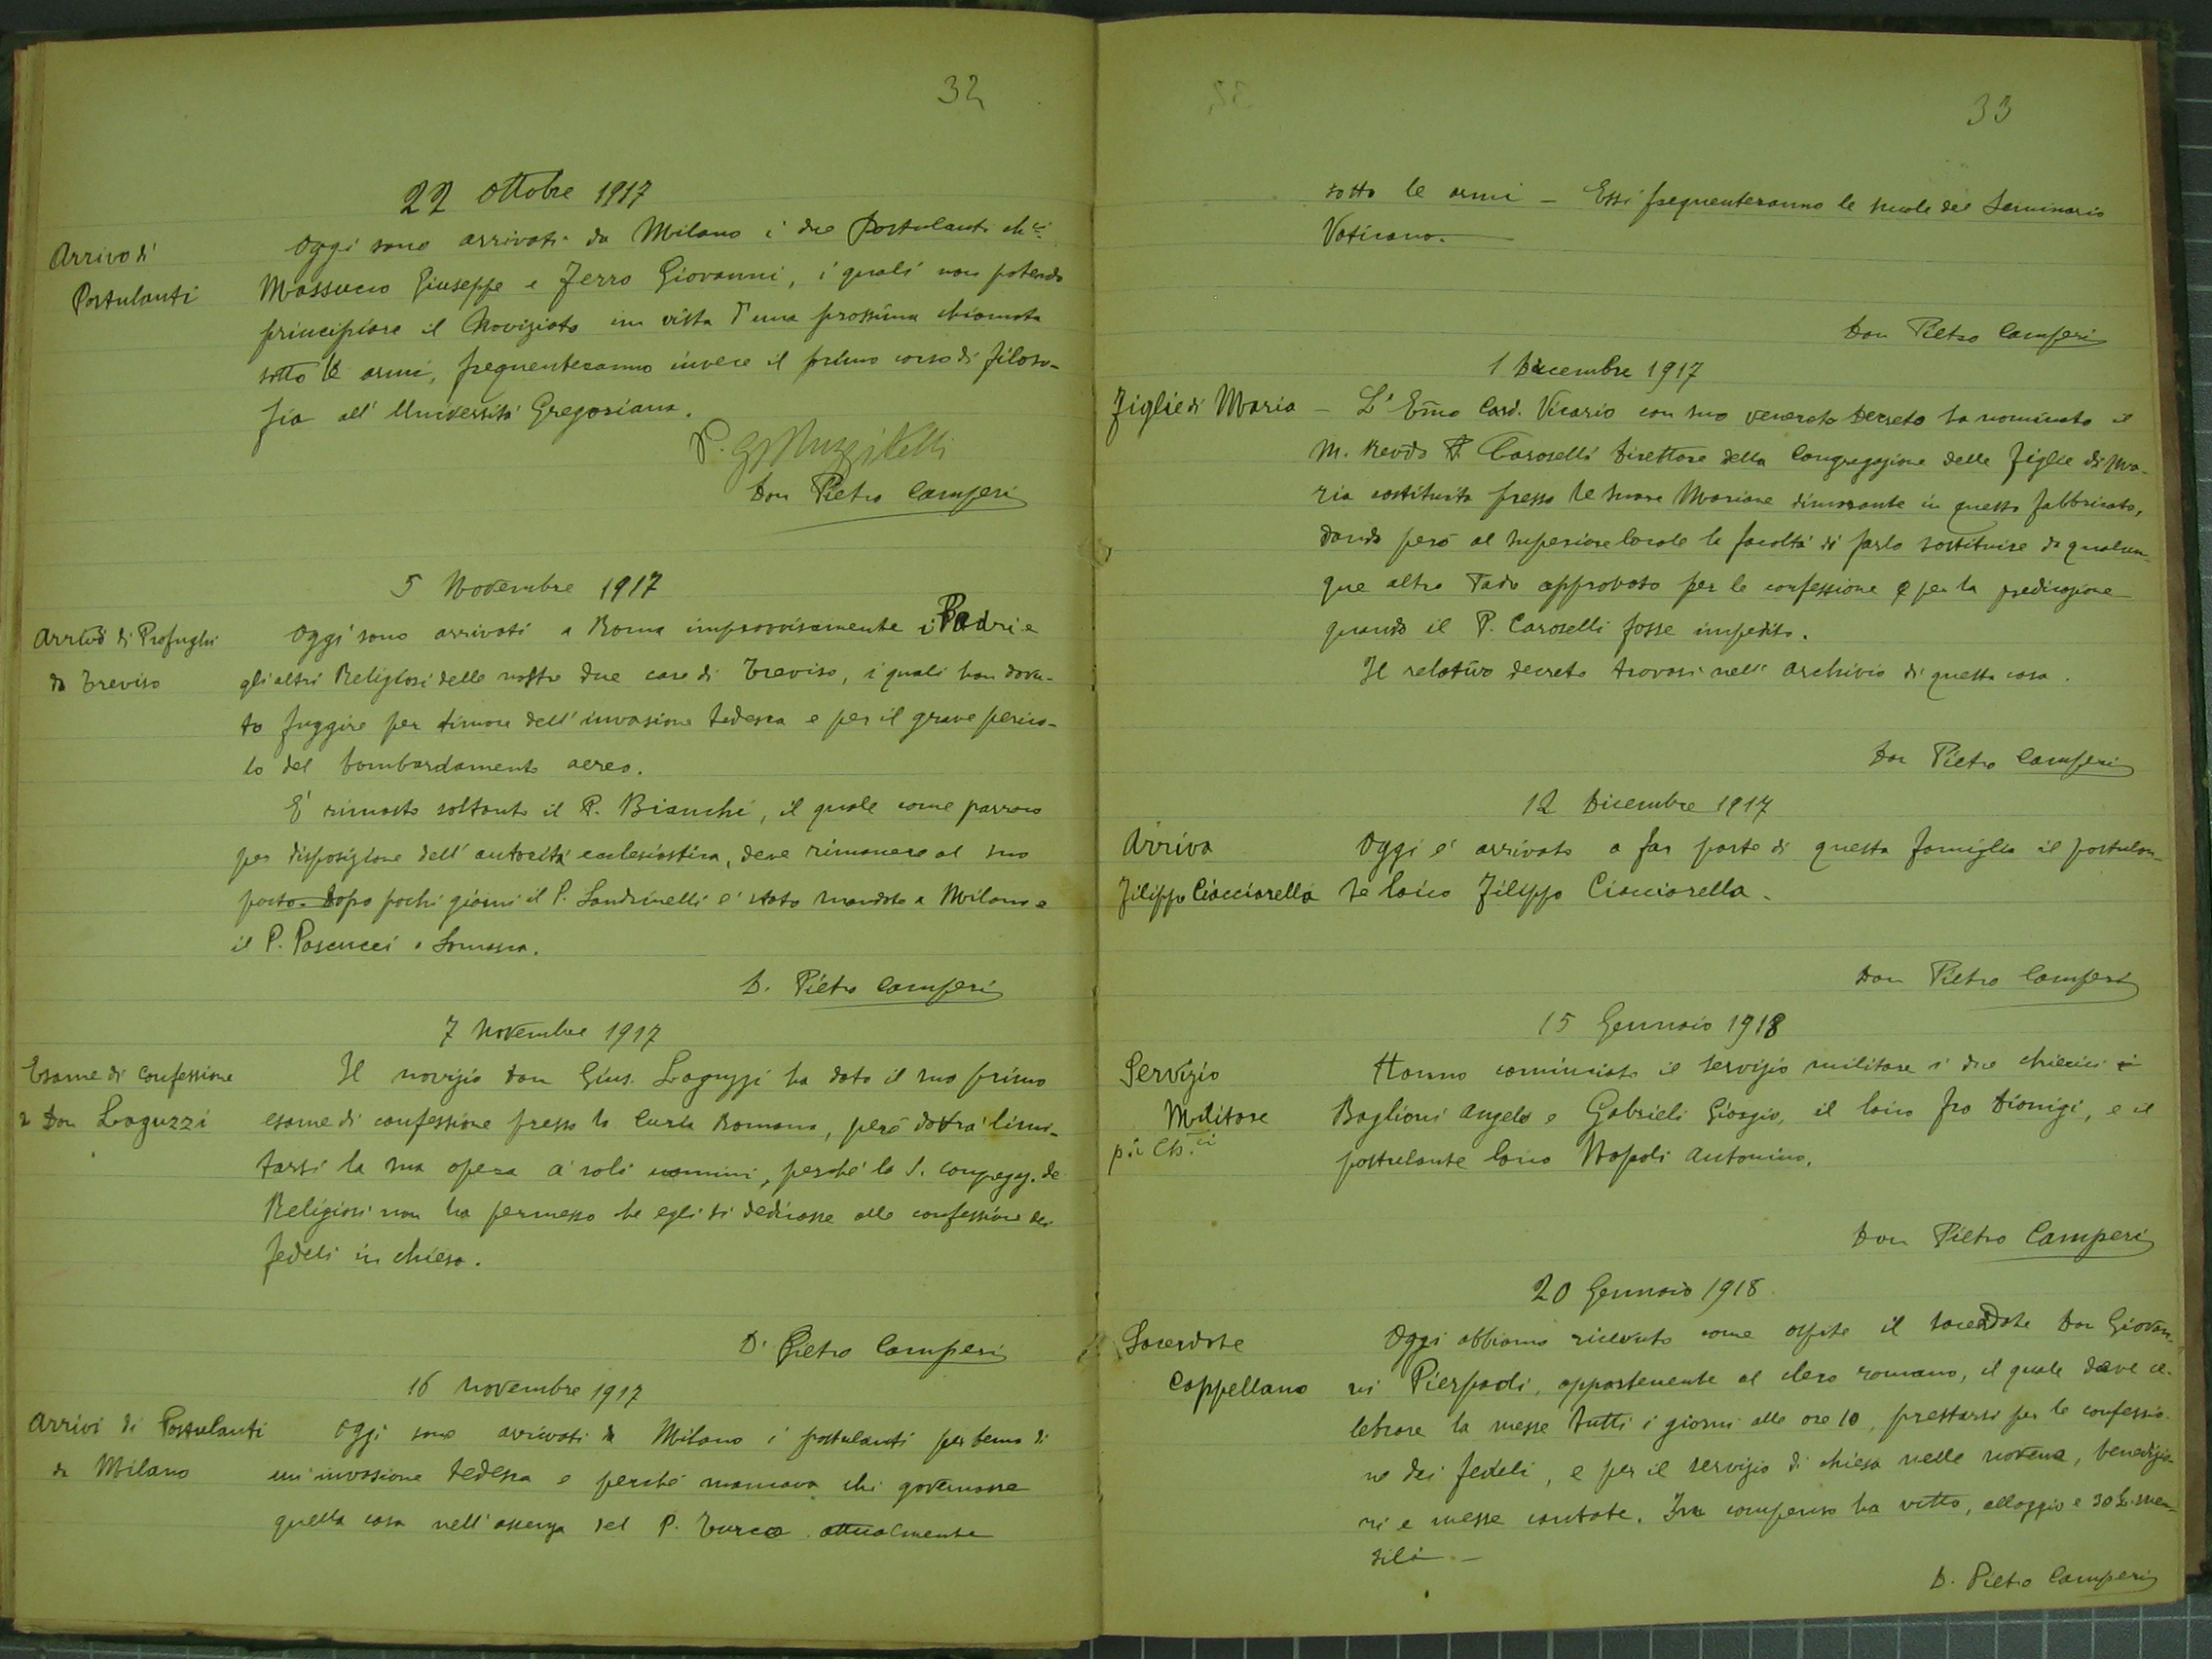 32
22 Ottobre 1917
Arrivo di
Postulanti
Oggi sono arrivati da Milano i due Postulanti ch.ci
Massucco Giuseppe e Ferro Giovanni, i quali non potendo
principiare il Noviziato in vista d'una prossima chiamata
sotto le armi, frequenteranno invece il primo corso di filoso-
fia all' Università Gregoriana.
P. G. Muzzitelli
Don Pietro Camperi
5 Novembre 1917
Arrivo di Profughi
da Treviso
Oggi sono arrivati a Roma improvvisamente i Padri e
gli altri Religiosi delle nostre due case di Treviso, i quali han dovu-
to fuggire per timore dell' invasione tedesca e per il grave perico-
lo del bombardamento aereo.
E' rimasto soltanto il P. Bianchi, il quale come parroco
per disposizione dell' autorità ecclesiastica, deve rimanere al suo
posto. Dopo pochi giorni il P. Landrinelli è stato mandato a Milano e
il P. Pascucci a Somasca.
D. Pietro Camperi
7 Novembre 1917
Esame di Confessione
a Don Laguzzi
Il novizio Don Gius. Laguzzi ha dato il suo primo
esame di confessione presso la Curia Romana, però dovrà limi-
tarsi la sua opera a' soli uomini, perché la S. Congregaz. de'
Religiosi non ha permesso che egli si dedicasse alle confessione dei
fedeli in chiesa.
D. Pietro Camperi
16 Novembre 1917
Arrivi di Postulanti
da Milano
Oggi sono arrivati da Milano i postulanti per tema di
un' invasione tedesca e perché mancava chi governasse
quella casa nell' assenza del P. Turco attualmente
33
sotto le armi – Essi frequenteranno le scuole del Seminario
Vaticano.
Don Pietro Camperi
1 Dicembre 1917
Figlie di Maria
– L' Emo Card. Vicario con suo venerato Decreto ha nominato il
M. Revdo P. Caroselli Direttore della Congregazione delle Figlie di Ma-
ria costituita presso le Suore Mariane dimorante in questo fabbricato,
dando però al Superiore locale la facoltà di farlo sostituire da qualun-
que altro Padre approvato per le confessione e per la predicazione
quando il P. Caroselli fosse impedito.
Il relativo decreto trovasi nell' archivio di questa casa.
Don Pietro Camperi
12 Dicembre 1917
Arriva
Filippo Ciacciarella
Oggi è arrivato a far parte di questa famiglia il postulan-
te laico Filippo Ciacciarella.
Don Pietro Camperi
15 Gennaio 1918
Servizio
Militare
p. i Ch.ci
Hanno cominciato il servizio militare i due chierici
Baglioni Angelo e Gabrieli Giorgio, il laico fra Dionigi, e il
postulante laico Napoli Antonino.
Don Pietro Camperi
20 Gennaio 1918
Sacerdote
Cappellano
Oggi abbiamo ricevuto come ospite il sacerdote Don Giovan-
ni Pierpaoli, appartenente al clero romano, il quale deve ce-
lebrare la messa tutti i giorni alle ore 10, prestarsi per le confessio-
ne dei fedeli, e per il servizio di chiesa nelle novene, benedizio-
ni e messe cantate. In compenso ha vitto, alloggio e 30 L. men-
sili –
D. Pietro Camperi